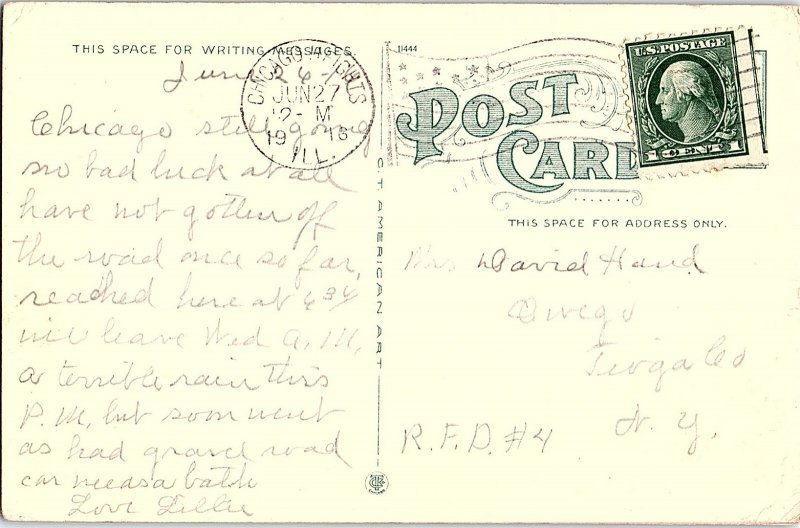 THIS SPACE FOR WRITING MESSAGES.
June 26-
CHICAGO HEIGHTS
JUN 27
2- M
19 16
ILL.
Chicago still going
no bad luck at all
have not gotten off
the road once so far,
reached here at 6 34
will leave Wed A. M,
a terrible rain this
P. M, but soon went
as had gravel road
car needs a bath
Love Lillie
C. T. AMERICAN ART
11444
POST
CARD
U.S. POSTAGE
1 CENT 1
THIS SPACE FOR ADDRESS ONLY.
Mrs David Hand
Owego
Tioga Co
N. Y.
R. F. D. #4